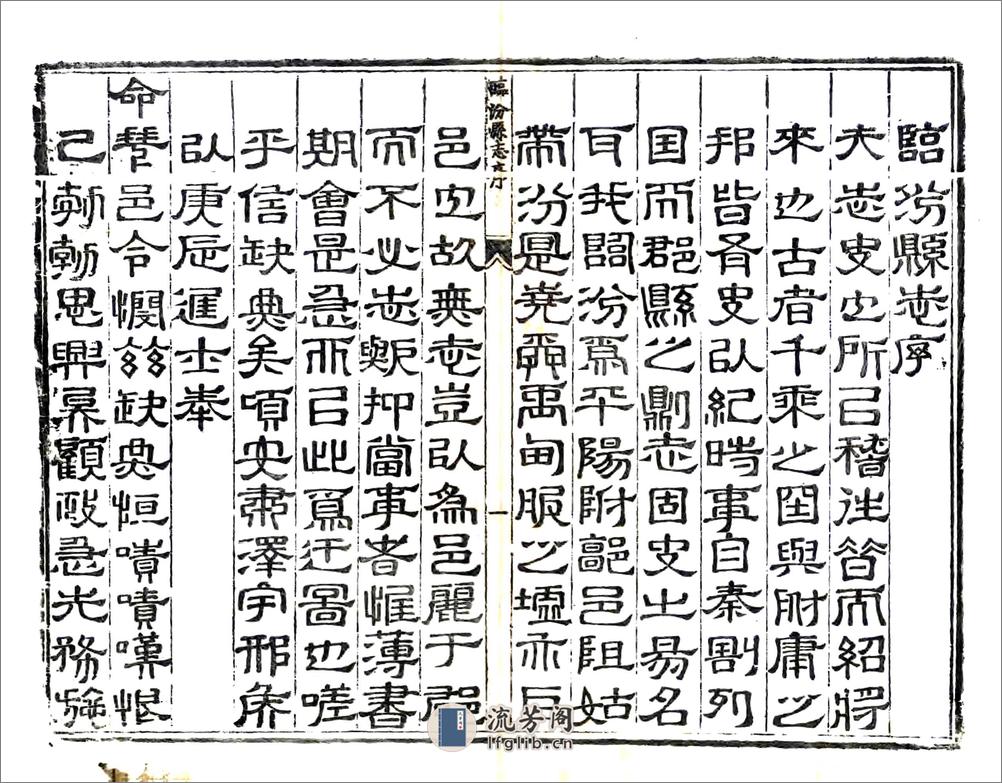 臨汾縣志序
夫志史之所以稽往昔而紹將
來也古者千乘之国與附庸之
邦皆有史以紀時事自秦割列
国而郡縣之則志固史之易名
耳我臨汾為平陽附郭邑阻姑
帶汾是堯舜禹甸服之墟亦巨
邑也故無志豈以為邑麗于郡
而不必志歟抑當事者惟薄書
期會是急而以此為迂圖也嗟
乎信缺典矣頃安肅澤宇邢侯
以庚辰進士奉
命邑令憫茲缺典恒嘖嘖嘆恨
己勃勃思興顧政急先務旋
臨汾縣志
一
流芳阁
lfglib.cn